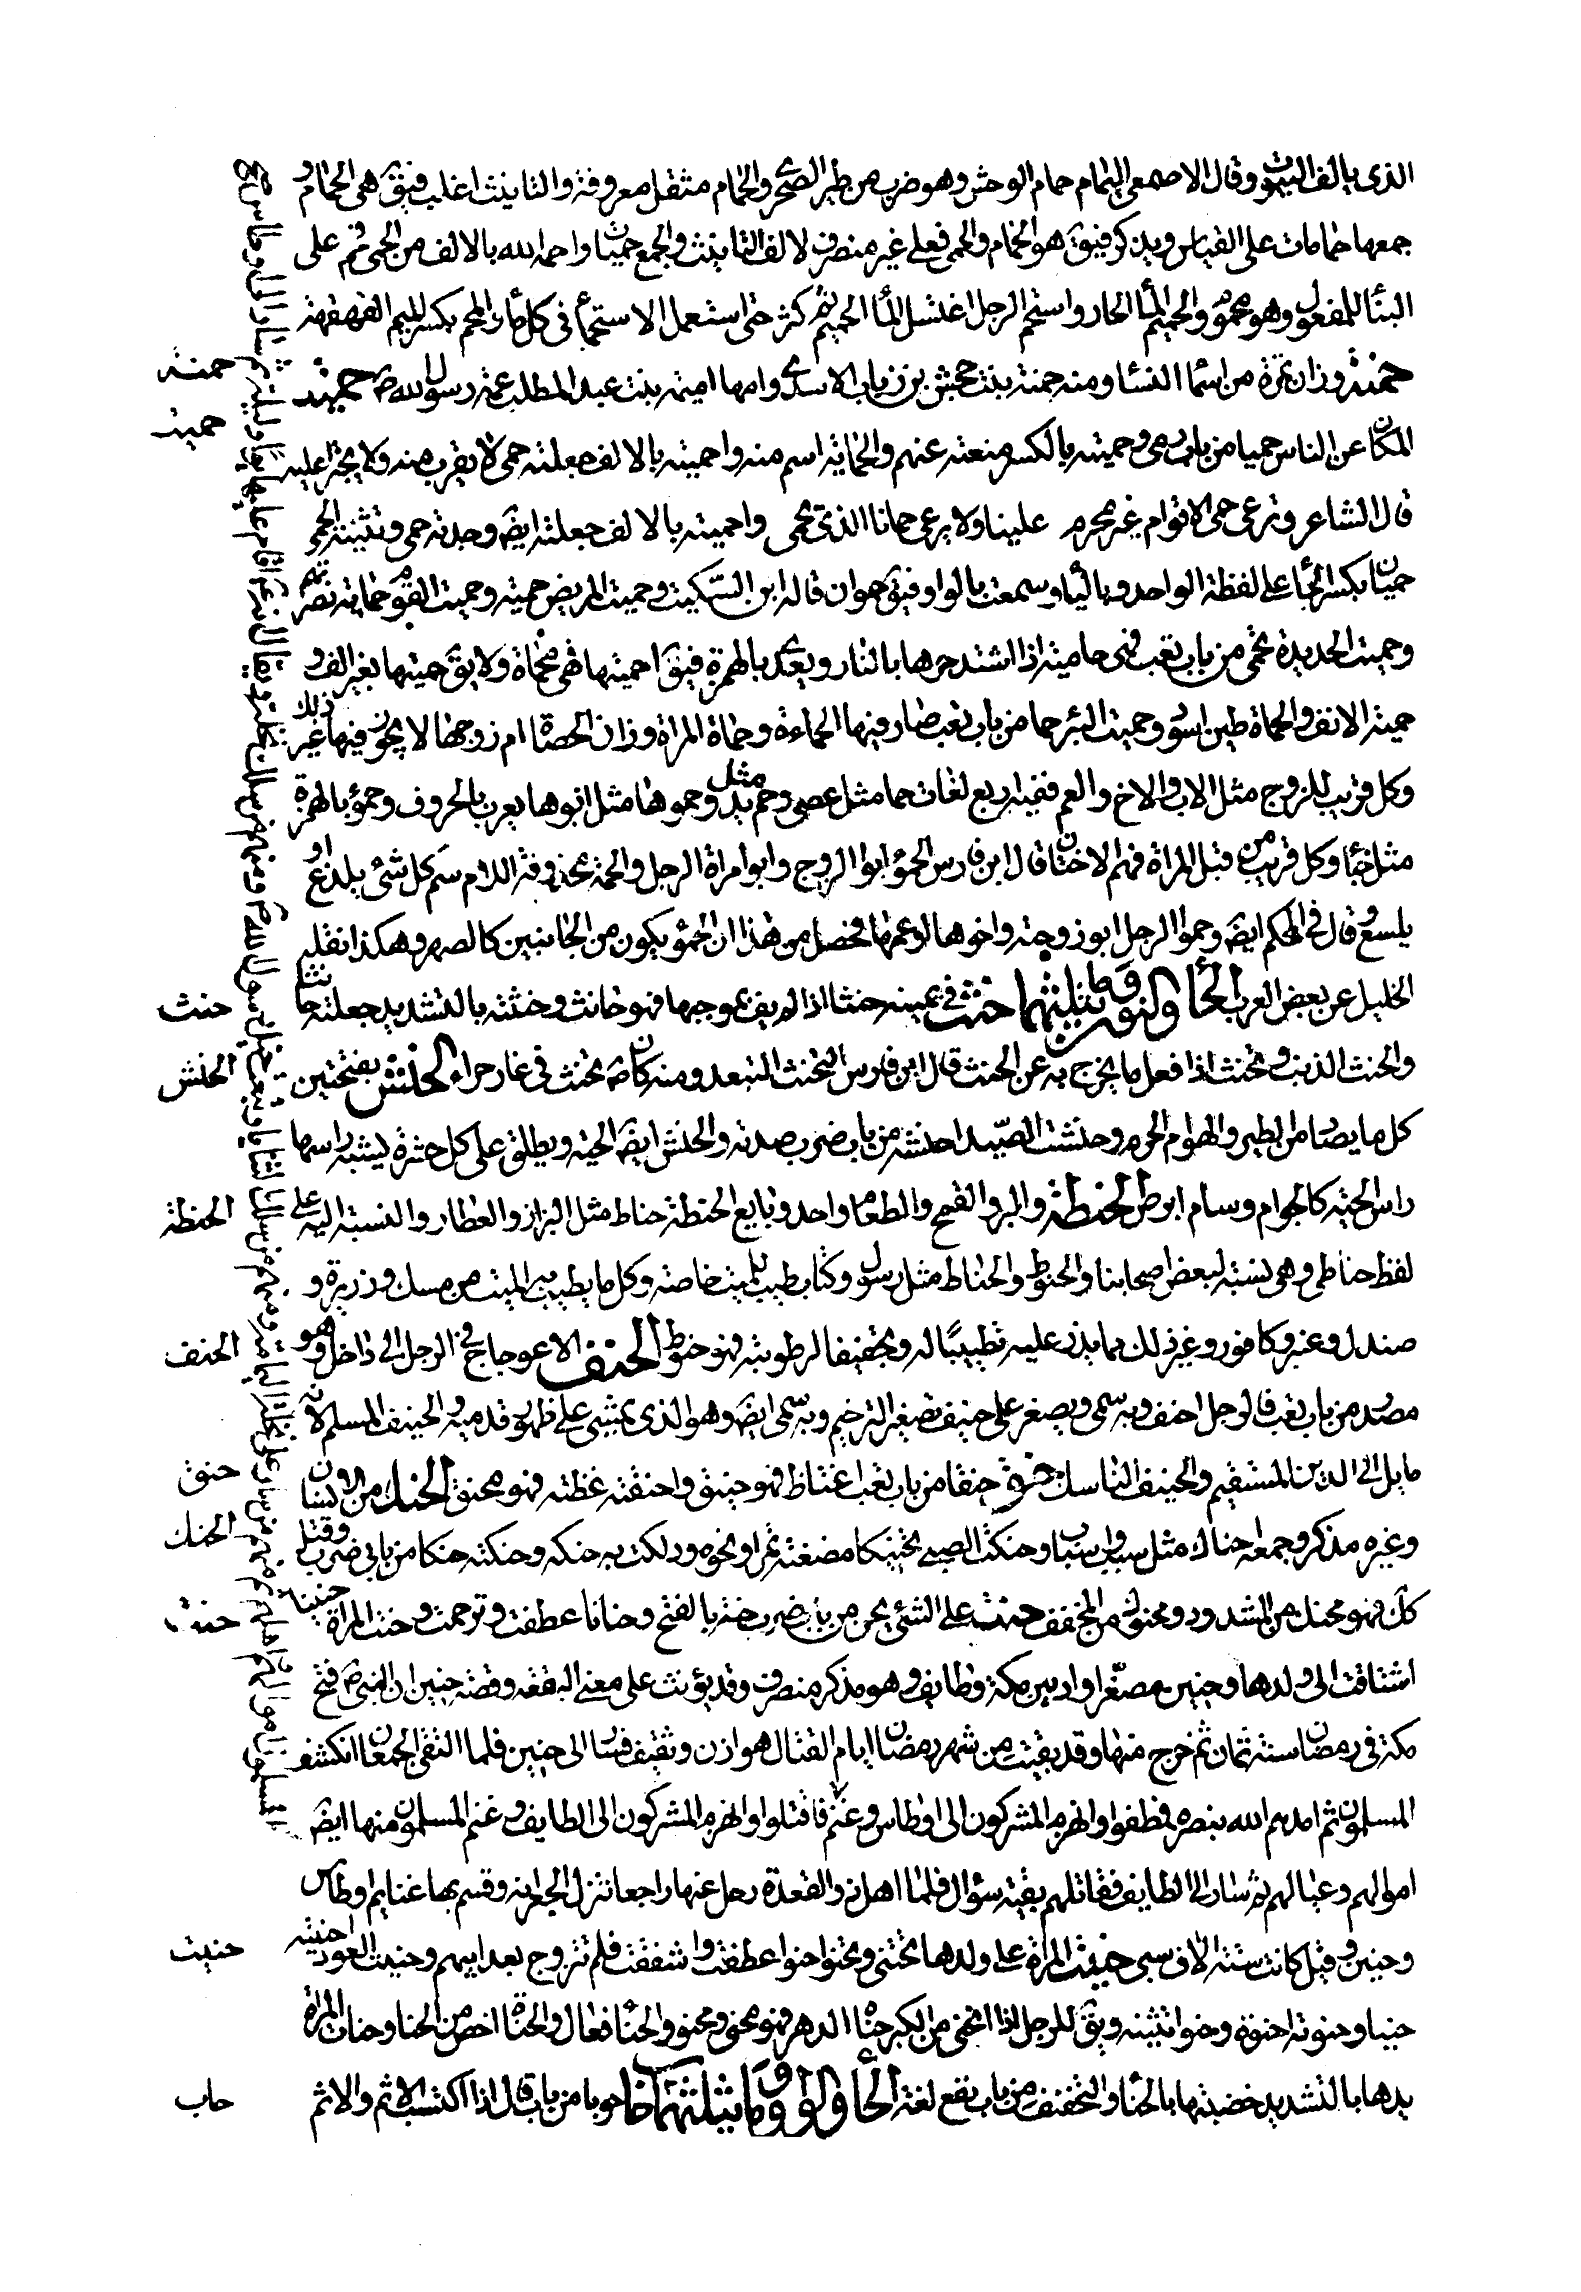 الذى يالف البيوت وقال الاصمعى اليمام حمام الوحش وهو ضرب من طير الصحراء والحمام مثقل معروفة والتانيث اغلب فيق هى الحمام و
جمعها حمامات على القياس ويذكر فيق هو الحمام والحمى فعلى غير منصرفة لالف التانيث والجمع حميات واحمه الله بالالف من الحمى فحم على
البنا للمفعول وهو محموم والحميم الما الحار واستحم الرجل اغتسل بالما الحميم ثم كثر حتى استعمل الاستحمام فى كل ماء والمحم بكسر الميم القمقمة
حمنة وزان تمرة من اسما النسا ومنه حمنة بنت جحش بن زياب الاسدى وامها اميمة بنت عبد المطلب عمة رسول الله ص حميت
المكان عن الناس حميا من باب رمى وحمية بالكسر منعته عنهم والحماية اسم منه واحميته بالالف جعلته حمى لا يقرب منه ولا يجترا عليه
قال الشاعر وترعى حمى الاقوام غير محرم علينا ولا يرعى حمانا الذى نحمى واحميته بالالف جعلته ايض وجدته حمى وتثنية الحمى
حميان بكسر الحا على لفظة الواحد وباليا وسمعت بالواو فيق حموان قاله ابن السكيت وحميت المريض حمية وحميت القوم حماية نصرتهم
وحميت الحديدة تحمى من باب تعب فهى حامية اذا اشتد حرها بالنار ويعدى بالهمزة فيق احميتها فهى محماة ولا يق حميتها بغير الف و
حمية الانف والحماة طين اسود وحميت البئر حما من باب تعب صار فيها الحماءة وحماة المراة وزان الحصاة ام زوجها لا يجوز فيها غير ذلك
وكل قريب للزوج مثل الاب والاخ والعم ففيه اربع لغات حما مثل عصى وحم مثل يد وحموها مثل ابوها يعرب بالحروف وحمؤ بالهمزة
مثل خبا وكل قريب من قبل المراة فهم الاختان قال ابن فارس الحمؤ ابوا الزوج وابوا مراة الرجل والحمة محذوفة اللام سم كل شئ يلدغ او
يلسع وقال فى المحكم ايض وحموا الرجل ابو زوجته واخوها او عمها فحصل من هذا ان الحمؤ يكون من الجانبين كالصهر وهكذا نقله
الخليل عن بعض العرب الحا والنون وما يثلثهما حنث فى يمينه حنثا اذا لم يف بموجبها فهو حانث وحنثته بالتشديد جعلته حانثا
والحنث الذنب وتحنث اذا فعل ما يخرج به عن الحنث قال ابن فارس التحنث التعبد ومنه كان ص يتحنث فى غار حراء الحنش بفتحتين
كل ما يصاد من الطير والهوام الحرم وحنشت الصيد احنشه من باب ضرب صدته والحنش ايض الحية ويطلق على كل حشرة يشبه راسها
راس الحية كالجوام وسام ابرص الحنطة والبر والقمح والطعام واحد وبايع الحنطة حناط مثل البزاز والعطار والنسبة اليه على
لفظ حناطى وهى نسبة لبعض اصحابنا والحنوط والحناط مثل رسول وكتاب طيب للميت خاصة وكل ما يطيب به الميت من مسك وذريرة و
صندل وعنبر وكافور وغير ذلك مما يذر عليه تطييبا له وتجفيفا لرطوبته فهو حنوط الحنف الاعوجاج فى الرجل الى داخل وهو
مصدر من باب تعب فالرجل احنف وبه سمى ويصغر على حنيف تصغير الترخيم وبه سمى ايض وهو الذى يمشى على ظهور قدميه والحنيف المسلم لانه
مايل الى الدين المستقيم والحنيف الناسك حنق حنقا من باب تعب اغتاظ فهو حنق واحنقته غظته فهو محنق الحنك من الانسان
وغيره مذكر وجمعه احناك مثل سبب واسباب وحنكت الصبى تحنيكا مضغت تمرا ونحوه ودلكت به حنكه وحنكته حنكا من بابى ضرب وقتل
كل فهو محنك من المشدود ومحنوك من المخفف حننت على الشئ يحن من باب ضرب حنة بالفتح وحنانا عطفت وترحمت وحنت المراة حنينا
اشتاقت الى ولدها وحنين مصغرا واد بين مكة وطايف وهو مذكر منصرف وقد يؤنث على معنى البقعة وقصة حنين ان النبى ص فتح
مكة فى رمضان سنة ثمان ثم خرج منها وقد بقيت من شهر رمضان ايام القتال هوازن وثقيف فسار الى حنين فلما التقى الجمعان انكشف
المسلمون ثم امدهم الله بنصره فعطفوا وانهزم المشركون الى اوطاس وغنم فاقتلوا وانهزم المشركون الى الطايف وغنم المسلمون منها ايض
اموالهم وعيالهم ثم سار الى الطايف فقاتلهم بقية شوال فلما اهل ذو القعدة رحل عنها راجعا نزل الجعرانة وقسم بها غنايم اوطاس
وحنين وقيل كانت ستة الاف سبى حنيت المراة على ولدها تحنى وتحنوا حنوا عطفت واشفقت فلم تتزوج بعد ابيهم وحنيت العود احنيته
حنيا وحنوته احنوه وحنوا ثنيته ويق للرجل اذا انحنى من الكبر حناه الدهر فهو محنى ومحنو والحنا فعال والحناة اخص من الحنا وحنات المراة
يدها بالتشديد خضبتها بالحنا والتخفيف من باب نفع لغة الحا والواو وما يثلثهما حاب حوبا من باب قال اذا اكتسب الاثم والاثم
حمنة
حميت
حنث
الحنش
الحنطة
الحنف
حنق
الحنك
حننت
حنيت
حاب